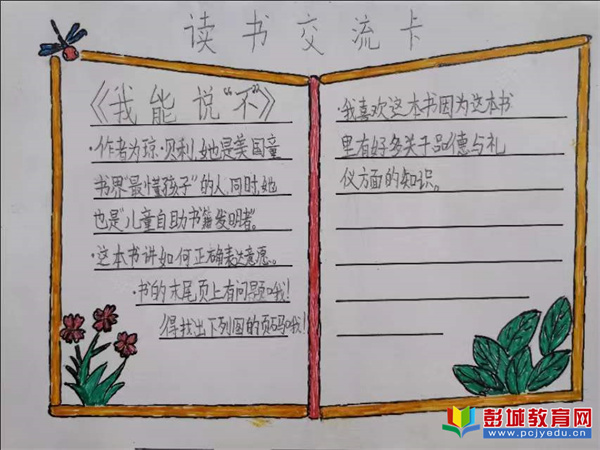 读书交流卡
《我能说“不”》
·作者为琼·贝利,她也是美国童
书界“最懂孩子”的人,同时,她
也是“儿童自助书籍发明者”。
·这本书讲如何正确表达意愿。
·书的末尾页上有问题哦!
得找出下列图的页码哦!
·我喜欢这本书因为这本书
里有好多关于品德与礼
仪方面的知识。
彭城教育网
www.pcjyedu.cn